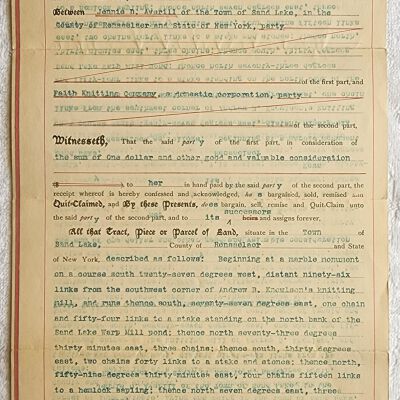 Between Jennie N. Averill of the Town of Sand Lake, in the
County of Rensselaer and State of New York, party
of the first part, and
Faith Knitting Company, a domestic corporation, party
of the second part,
Witnesseth, That the said party of the first part, in consideration of
the sum of One dollar and other good and valuable consideration
to her in hand paid by the said party of the second part, the
receipt whereof is hereby confessed and acknowledged, has bargained, sold, remised and
Quit-Claimed, and By these Presents, does bargain, sell, remise and Quit-Claim unto
the said party of the second part, and to its successors heirs and assigns forever,
All that Tract, Piece or Parcel of Land, situate in the Town of
Sand Lake, County of Rensselaer and State
of New York, described as follows: Beginning at a marble monument
on a course south twenty-seven degrees west, distant ninety-six
links from the southwest corner of Andrew B. Knowlson's knitting
mill, and runs thence south, seventy-seven degrees east, one chain
and fifty-four links to a stake standing on the north bank of the
Sand Lake Warp Mill pond; thence north seventy-three degrees
thirty minutes east, three chains; thence south, thirty degrees
east, two chains forty links to a stake and stones; thence, north,
fifty-nine degrees thirty minutes east, four chains fifteen links
to a hemlock sapling; thence north seven degrees east, three